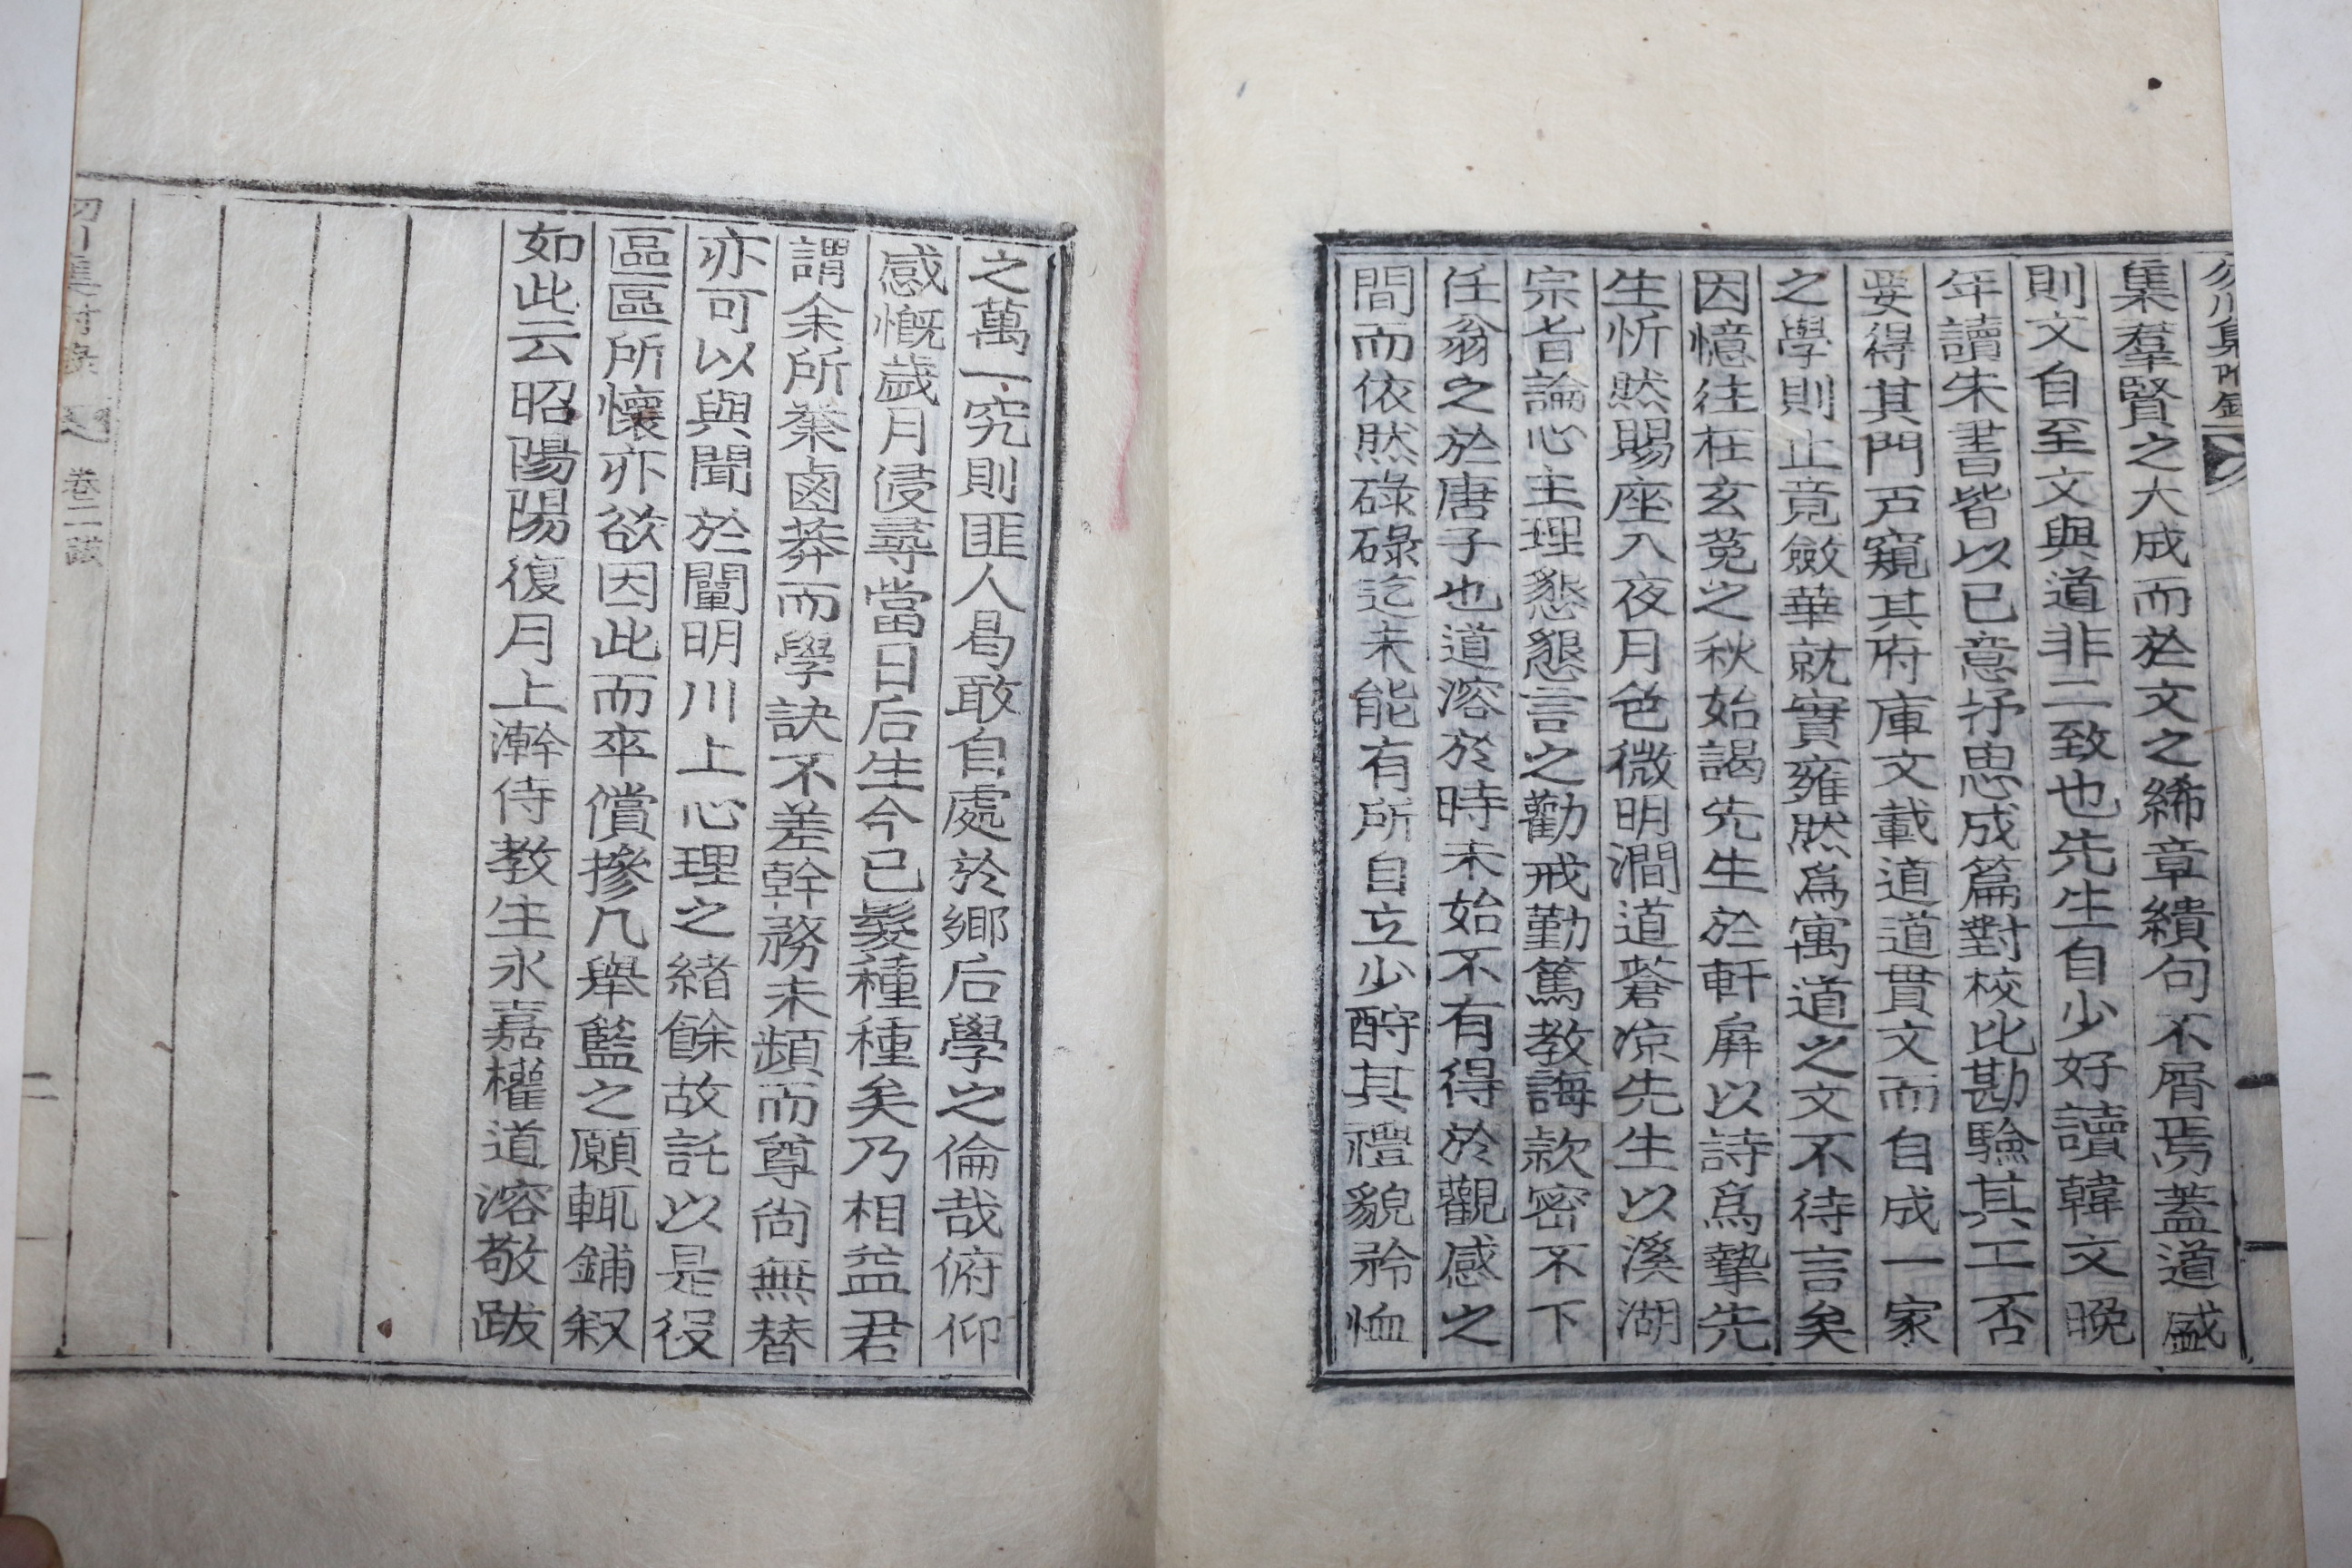 集羣賢之大成而於文之絺章繢句不屑焉蓋道盛
則文自至文與道非二致也先生自少好讀韓文晩
年讀朱書皆以已意抒思成篇對校比勘驗其工否
要得其門戶窺其府庫文載道道貫文而自成一家
之學則止竟斂華就實雍然爲寓道之文不待言矣
因憶往在玄菟之秋始謁先生於軒屛以詩爲摯先
生忻然賜座入夜月色微明澗道蒼凉先生以溪湖
宗旨論心主理懇懇言之勸戒勤篤教誨款密不下
任翁之於唐子也道溶於時未始不有得於觀感之
間而依然碌碌迄未能有所自立少酧其禮貌矜恤
之萬一究則匪人曷敢自處於鄉后學之倫哉俯仰
感慨歲月侵尋當日后生今已髮種種矣乃相益君
謂余所業鹵莽而學訣不差幹務未頻而尊尙無替
亦可以與聞於闡明川上心理之緖餘故託以是役
區區所懷亦欲因此而卒償摻几舉籃之願輒鋪叙
如此云昭陽陽復月上澣侍教生永嘉權道溶敬跋
卷二 跋
二